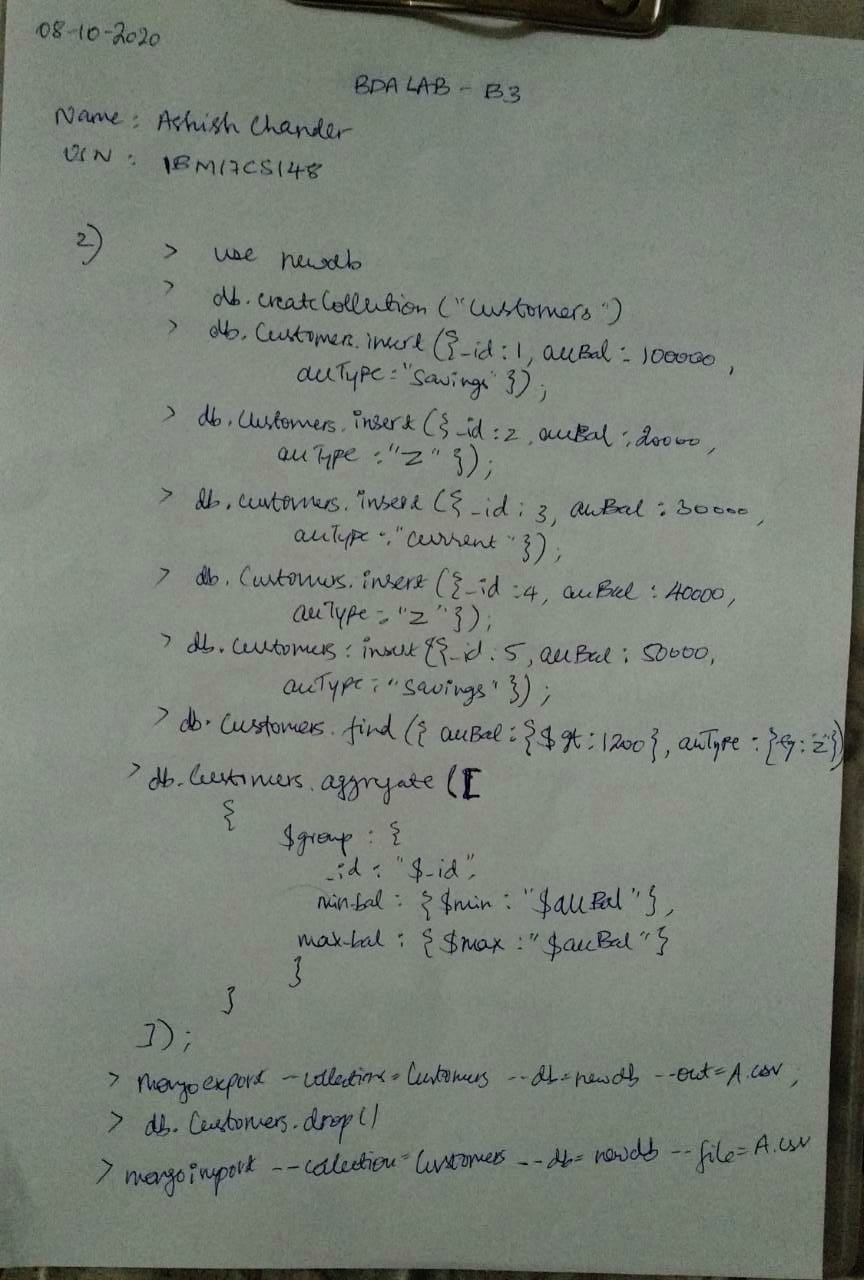 08-10-2020
BDA LAB - B3
Name : Ashish Chander
USN : 1BM17CS148
2) > use newdb
> db.createCollection ("Customers")
> db. Customers. insert ({_id : 1, accBal : 100000,
accType : "Savings" });
> db. Customers. insert ({_id : 2, accBal : 20000,
accType : "Z" });
> db. customers. insert ({_id : 3, accBal : 30000,
accType : "current" });
> db. Customers. insert ({_id : 4, accBal : 40000,
accType : "Z" });
> db. customers. insert ({_id : 5, accBal : 50000,
accType : "savings" });
> db. Customers. find ({ accBal : {$gt : 1200}, accType : {eq : "Z"})
> db. Customers. aggregate ([
{
$group : {
_id : "$_id",
min-bal : {$min : "$accBal"},
max-bal : {$max : "$accBal"}
}
}
]);
> mongoexport --collection=Customers --db=newdb --out=A.csv,
> db. Customers. drop()
> mongoimport --collection=Customers --db=newdb --file=A.csv